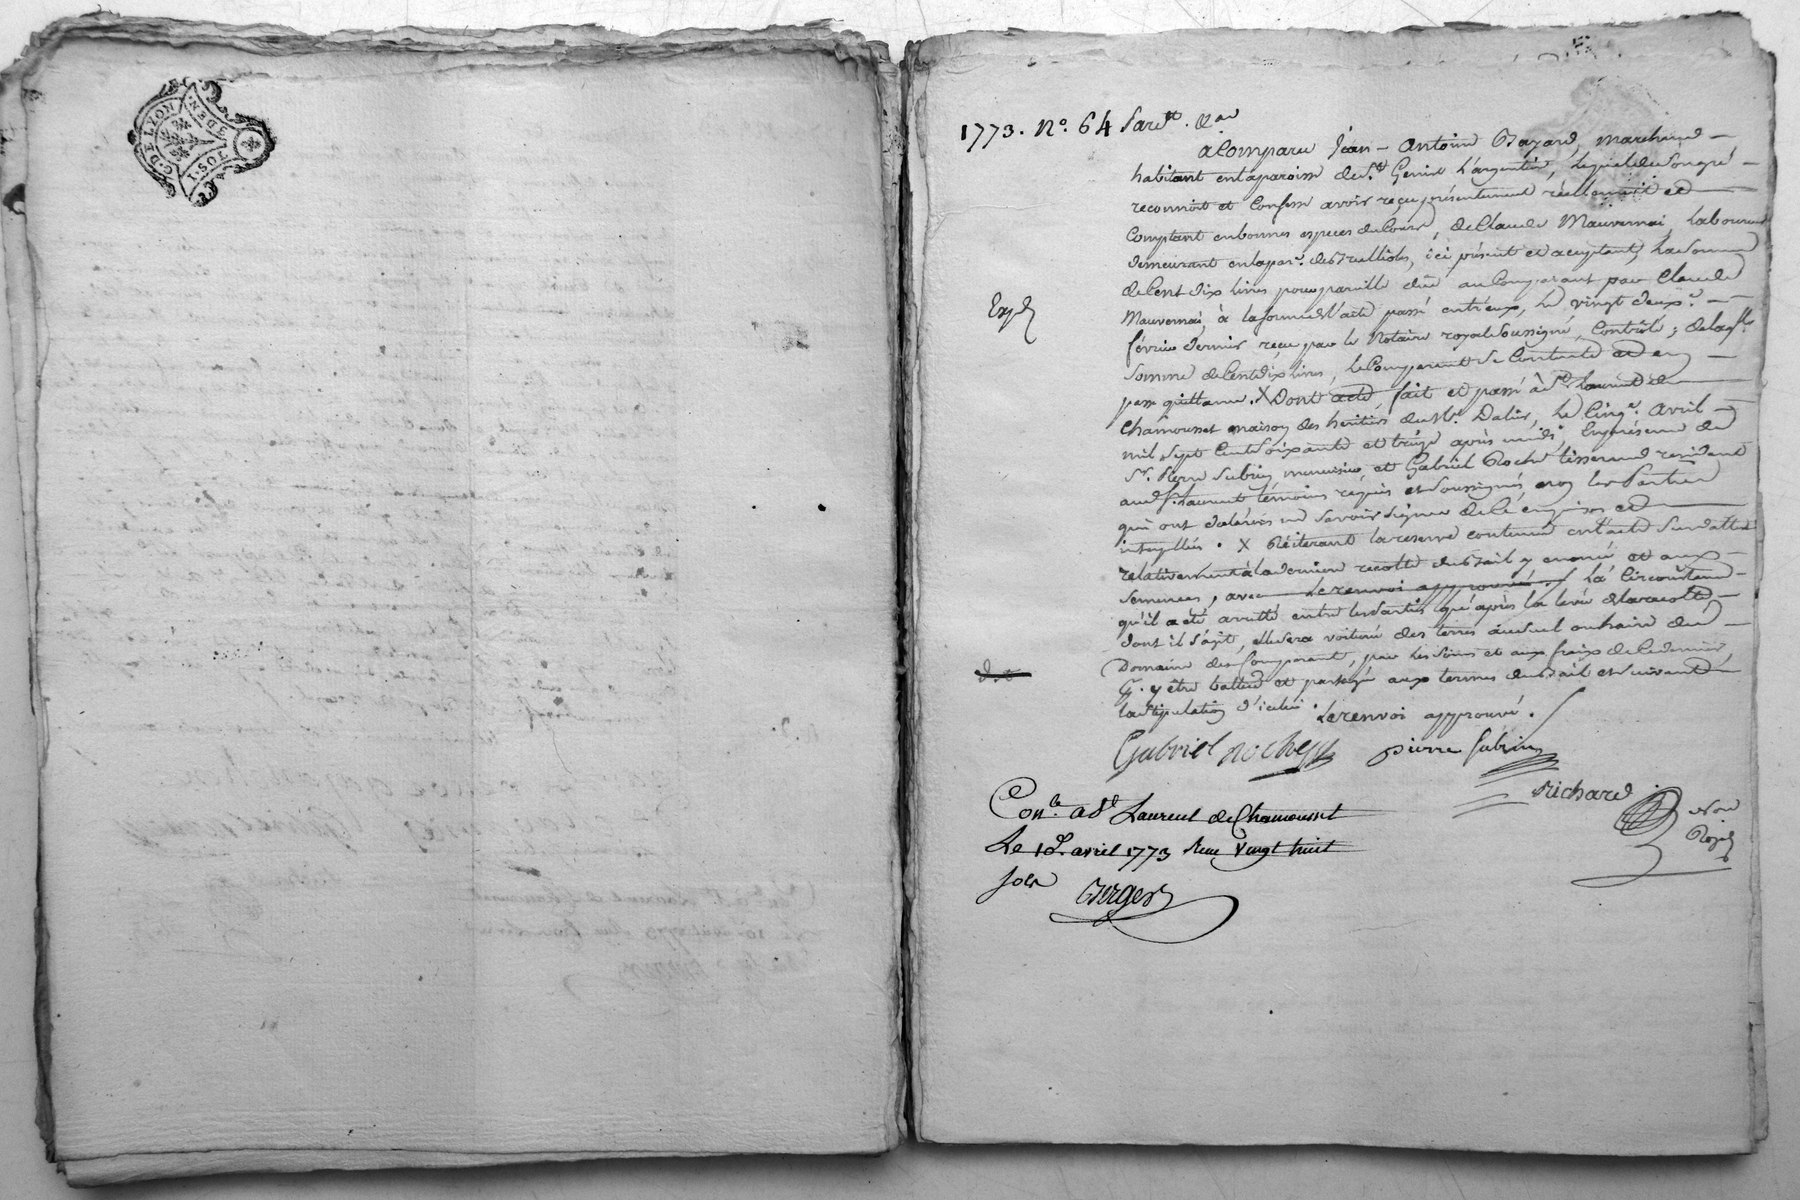 G. DE LYON
1. SOL
3. DEN.
1773. No. 64
a Comparu Jean - Antoine Bazard, marchand -
habitant en la paroisse de St. Genis L'argentiere, lequel de Son gré -
reconnoit et Confesse avoir reçu présentement réellement et
Comptant en bonnes especes de Cours, de Claude Mauvernai, Laboureur
demeurant en la par. de Brullioles, ici présent et acceptant, La Somme
de Cent dix Livres pour pareille due au Comparant par Claude
Mauvernai, à la forme de l'acte passé entr'eux, Le vingt deux.e -
février dernier reçu par le Notaire royal Soussigné, Controlé; de laq.lle
Somme de Cent dix Livres, le Comparant Se Contente et en
passe quittance. X Dont acte, fait et passé à St. Laurent de
Chamousset maison des héritiers du Sr. Dalin, Le Cinq.e avril -
mil Sept Cent Soixante et treize après midi, En présence de
Sr. Pierre Subrin, menuisier et Gabriel Roche tisserand residents
aud. St. Laurent témoins requis et Soussignés, non les Parties
qui ont déclarés ne Savoir Signer de Ce enquises et
interpellés. X Réiterant la reserve contenue en l'acte Susdatté
relativement à la derniere recolte du Bail y enoncé et aux -
Semences, avec Le renvoi approuvé. La Circonstance -
qu'il a été arretté entre les Parties qu'après la levée de la recolte -
dont il S'agit, elle Sera voiturée des terres au Suel ou haire du -
Domaine du Comparant, par les Soins et aux fraix de Ce dernier
p. y être battue et partagée aux termes du Bail et Suivant
la Stipulation d'icelui. Le renvoi approuvé.
Exp.
Gabriel Roche pierre Subrin
Richard
Nore
Royal
Con.lé a St. Laurent de Chamousset
Le 10. avril 1773 Reçu Vingt huit
Sols
Berger